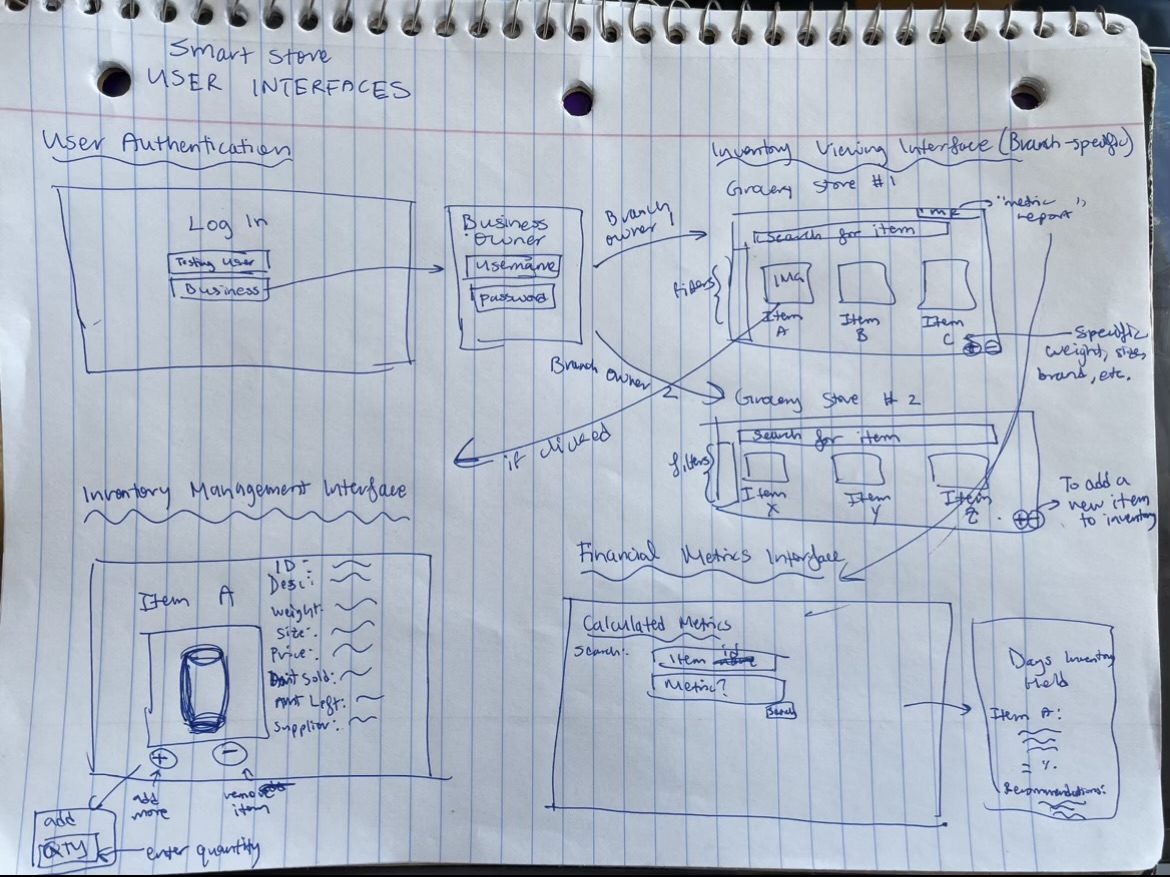 Smart Store
USER INTERFACES
User Authentication
Log In
Testing User
Business
Business
Owner
Username
password
Branch
owner 1
Branch Owner
2
Inventory Viewing Interface (Branch-specific)
Grocery Store #1
MR
"metric
report"
Search for item
filters
IMG
Item
A
Item
B
Item
C
+ -
Specific
weight, size,
brand, etc.
if clicked
Grocery Store #2
Search for item
filters
Item
X
Item
Y
Item
Z
+ -
To add a
new item
to inventory
Inventory Management Interface
Item A
ID:
Desc:
Weight:
Size:
Price:
Amt Sold:
Amt Left:
Supplier:
+ -
add
more
remove
item
add
QTY
enter quantity
Financial Metrics Interface
Calculated Metrics
Search:
Item id
Metric?
Search
Days Inventory
Held
Item A:
= %
Recommendations: